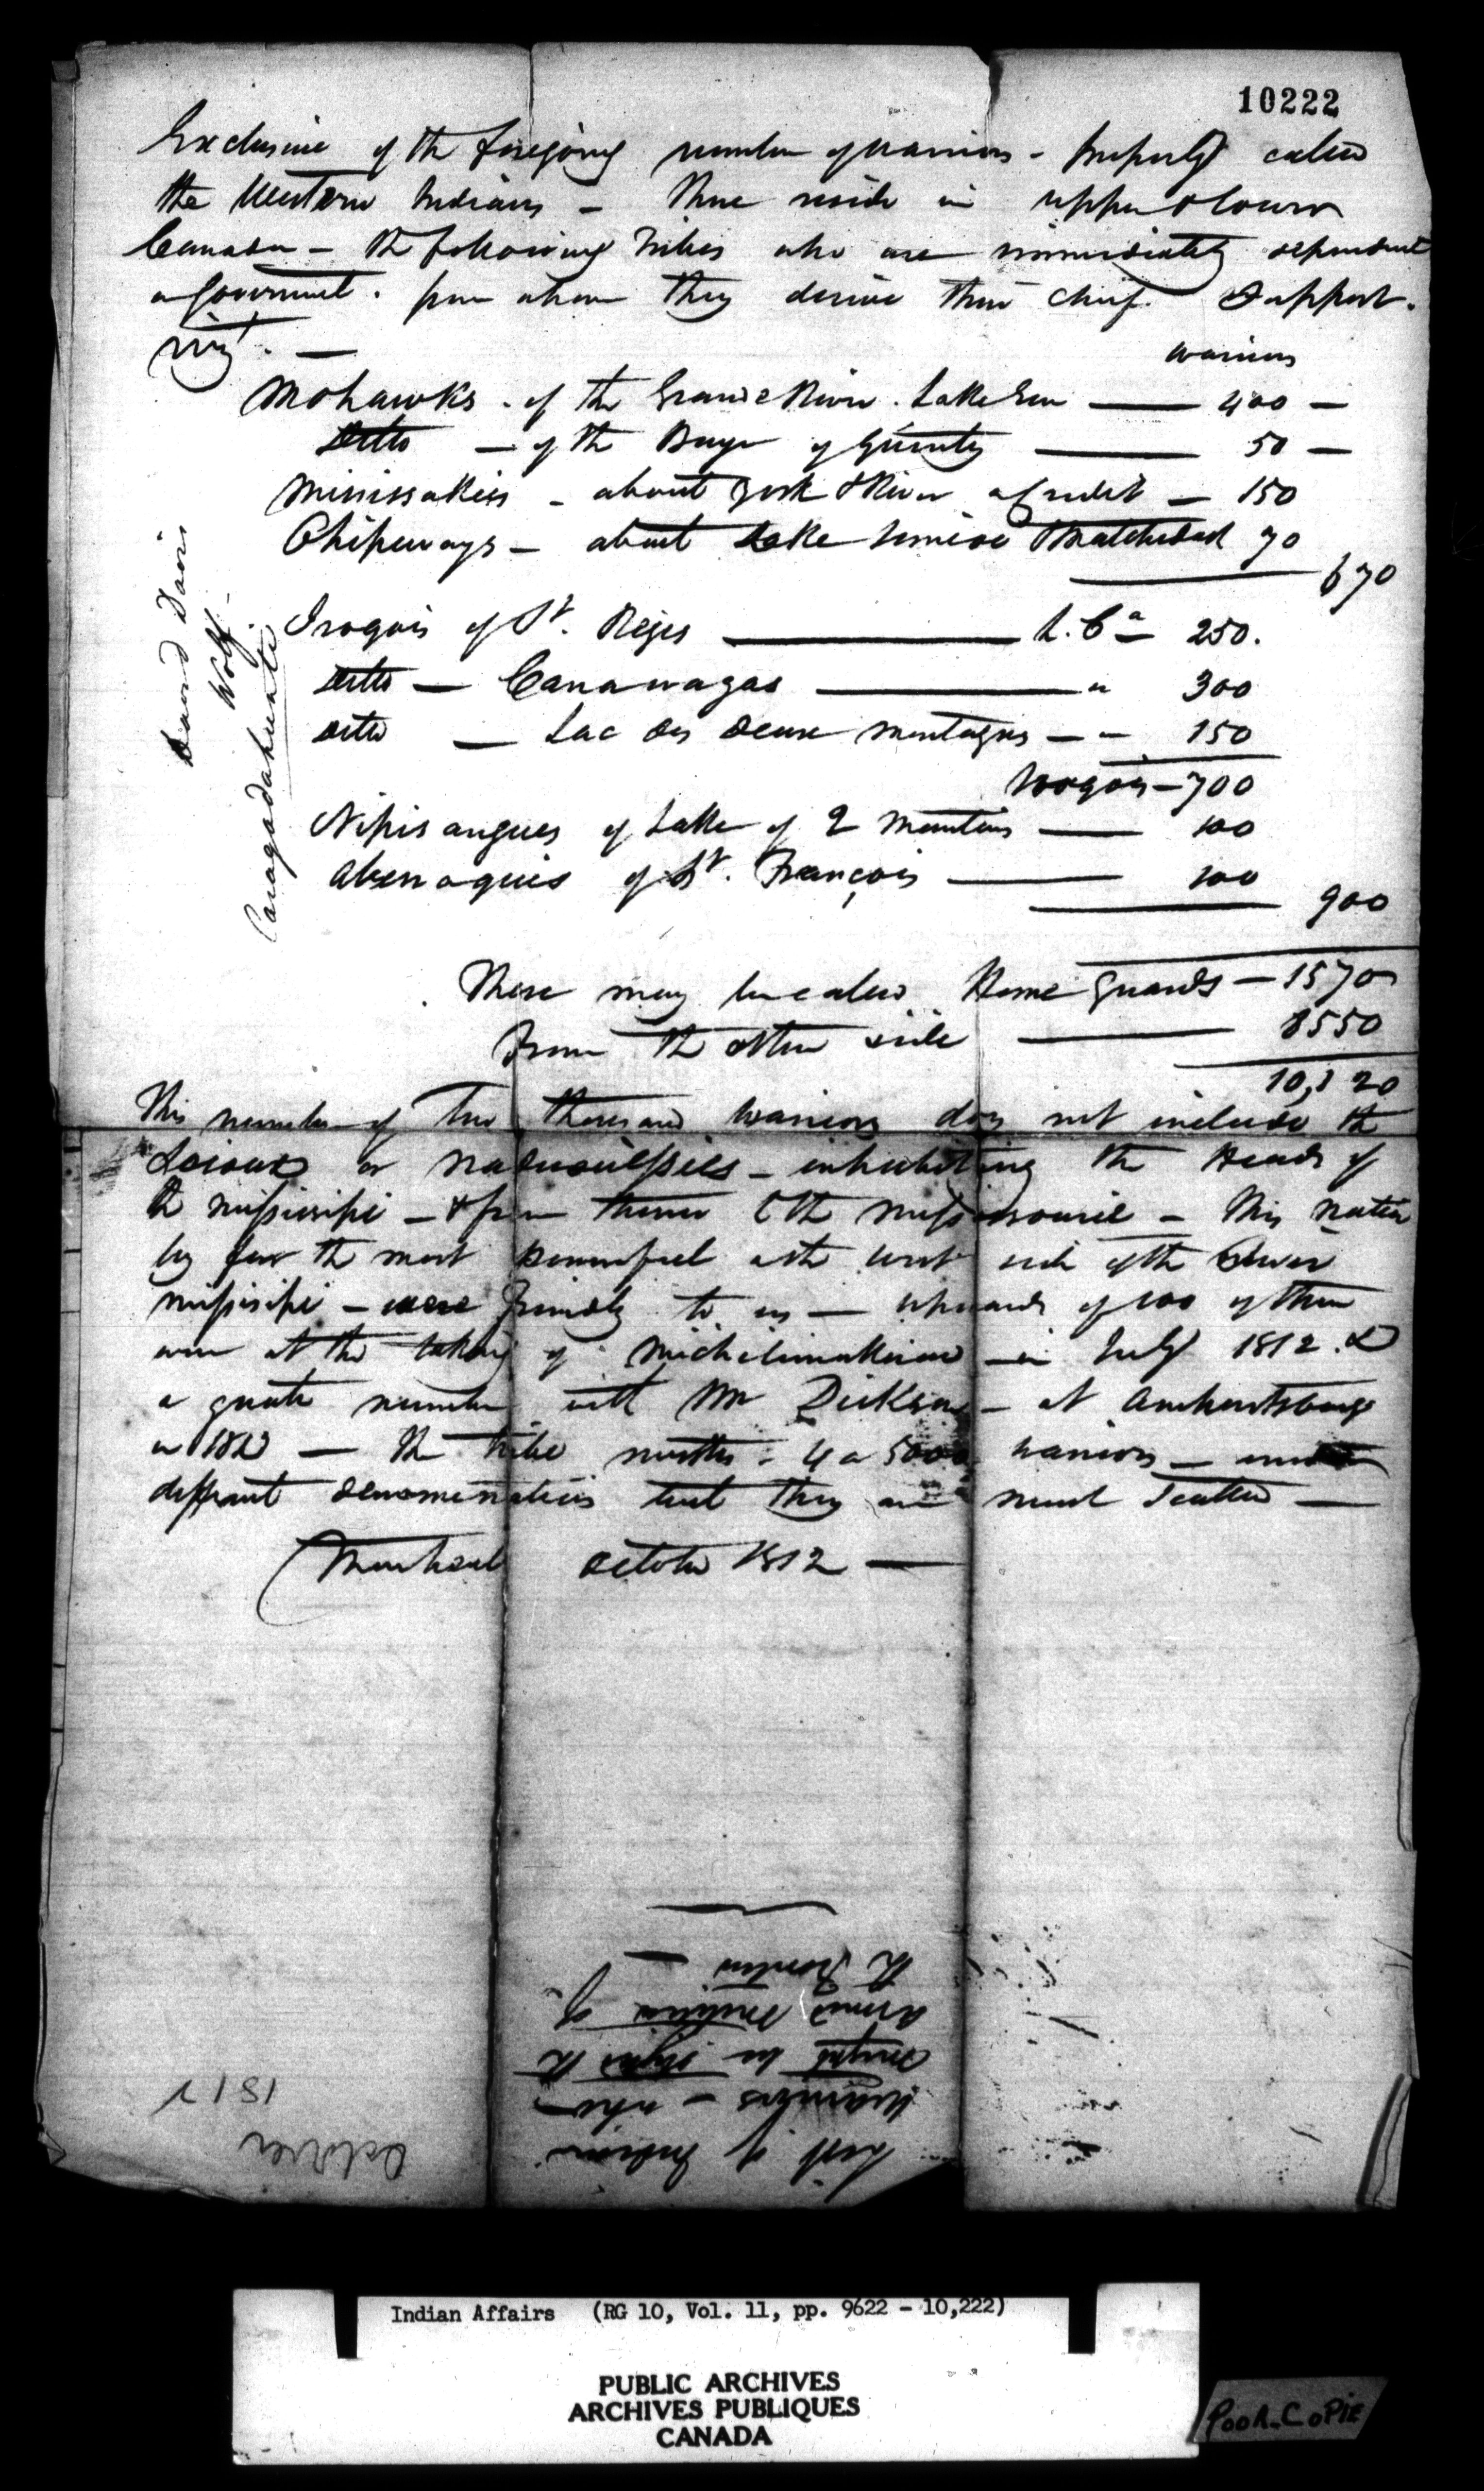 10222
Exclusive of the foregoing number of warriors - properly called
the Western Indians - there reside in upper & lower
Canada - the following Tribes who are immediately dependent
on Government. from whom they derive their chief Support.
viz. —
warriors
Mohawks - of the Grand River. Lake Erie — 400 —
Ditto — of the Baye of Quinty — 50 —
Missisakies - about York & River a Credit — 150
Chipeways - about Lake Simcoe & Matchedash 70
670
Iroquois of St. Regis — L. Ca — 250.
Ditto — Canawagas — " 300
ditto — Lac des deux montagnes — " 150
Iroquois — 700
Nipisangues of Lake of 2 Mountains — 100
Abenaquies of St. François — 100
900
These may be called Home Guards — 1570
From the other side — 8550
10,120
This number of Ten thousand warriors does not include the
Scioux or Nadouessies - inhabiting the Heads of
the Missisipi — & from thence to the Missourie — This Nation
by far the most powerful on the west side of the River
Missisipi — were friendly to us — upwards of 100 of them
were at the taking of Michilimakinac in July 1812. &
a greater number with Mr Dickson — at Amherstburg
in — the tribe musters 4 a 5000 warriors — under
different denominations but they are much Scattered —
Montreal October 1812 —
David Davis
Wolf -
List of Indian
Warriors - who
might be styled the
armed militia of
the Frontier —
October
1812
Indian Affairs (RG 10, Vol. 11, pp. 9622 - 10,222)
PUBLIC ARCHIVES
ARCHIVES PUBLIQUES
CANADA
POOR-COPIE